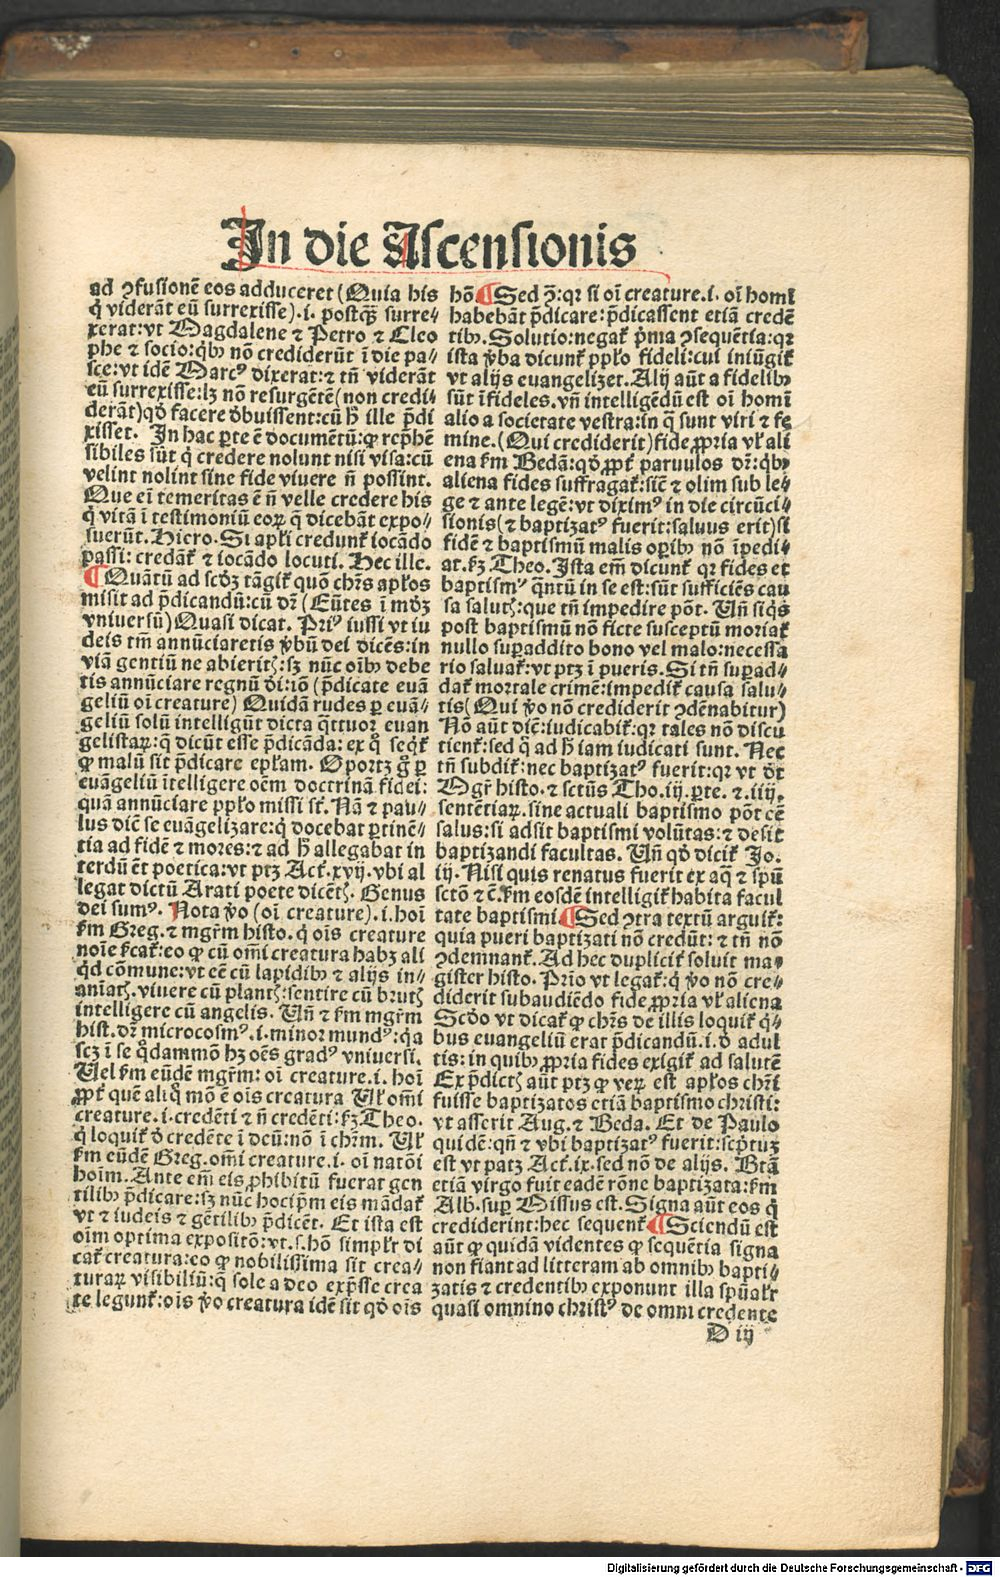 In die Ascensionis
ad ꝯfusionē eos adduceret (Quia his
q̇ viderāt eū surrexisse).i. postq̃ȝ surre⸗
xerat: vt Magdalene ⁊ Petro ⁊ Cleo
phe ⁊ socio: q̇bꝫ nō crediderūt ī die pa⸗
sce: vt idē Marcꝰ dixerat: ⁊ tñ viderāt
eū surrexisse: lꝫ nō resurgētē (non credi⸗
derāt) qḋ facere ꝺbuissent: cū h̄ ille p̄di
xisset. In hac ꝑte ē documētū: ꝙ rep̄hē
sibiles sūt q̇ credere nolunt nisi visa: cū
velint nolint sine fide viuere ñ possint.
Que eī temeritas ē ñ velle credere his
q̇ vitā ī testimoniū eoꝝ q̄ dicebāt expo⸗
suerūt. Hiero. Si apl̄i credunt̃ iocādo
passi: credāt̃ ⁊ iocādo locuti. Hec ille.
¶ Quātū ad scḋȝ tāgit̃ quō chr̄s apl̄os
misit ad p̄dicandū: cū dr̄ (Eūtes ī mūdȝ
vniuersū) Quasi dicat. Priꝰ iussi vt iu
deis tm̄ annūciaretis ꝟbū dei dicēs: in
viā gentiū ne abieritꝭ: sȝ nūc oībꝫ debe
tis annūciare regnū dei: iō (p̄dicate euā
geliū oī creature) Quidā rudes ꝑ euā⸗
geliū solū intelligūt dicta q̄ttuor euan
gelistaꝝ: q̄ dicūt esse p̄dicāda: ex q̊ seqt̃
ꝙ malū sit p̄dicare epl̄am. Oportȝ g̊ ꝑ
euāgeliū ītelligere oēm doctrinā fidei:
quā annūciare ppl̄o missi st̄. Nā ⁊ pau⸗
lus dic̄ se euāgelizare: q̇ docebat ꝑtinē⸗
tia ad fidē ⁊ mores: ⁊ ad h̄ allegabat in
terdū ēt poetica: vt ptȝ Act̃. xvij. vbi al
legat dictū Arati poete dicētꝭ. Genus
dei sumꝰ. Nota ꝟo (oī creature).i. hoī
ẜm Greg. ⁊ mgr̄m histo. q̇ oīs creature
noīe ẜcat̃: eo ꝙ cū omī creatura habȝ ali
qḋ cōmune: vt eē cū lapidibꝫ ⁊ alijs in⸗
aīatꝭ. viuere cū plantꝭ: sentire cū brutꝭ
intelligere cū angelis. Uñ ⁊ ẜm mgr̄m
hist. dr̄ microcosmꝰ.i. minor mundꝰ: q̇a
scȝ ī se q̊dammō hȝ oēs gradꝰ vniuersi.
Uel ẜm eūdē mgr̄m: oī creature.i. hoī
ꝓpt̃ quē aliq̊ mō ē oīs creatura Ul̃ omī
creature.i. credēti ⁊ ñ credēti: ẜȝ Theo.
q̇ loquit̃ ꝺ credēte ī deū: nō ī chr̄m. Ul̃
ẜm eūdē Greg. omī creature.i. oī natōi
hoīm. Ante em̄ eis ꝓhibitū fuerat gen
tilibꝫ p̄dicare: sȝ nūc hocip̄m eis mādat̃
vt ⁊ iudeis ⁊ gētilibꝫ p̄dicēt. Et ista est
oīm optima expositō: vt.s. hō simpl̃r di
cat̃ creatura: eo ꝙ nobilissima sit crea⸗
turaꝝ visibiliū: q̄ sole a deo exp̄sse crea
te legunt̃: oīs ꝟo creatura idē sit qḋ oīs
hō. ¶ Sed ꝯ̄: qꝛ si oī creature.i. oī homī
habebāt p̄dicare: p̄dicassent etiā credē
tibꝫ. Solutio: negat̃ p̄ma ꝯsequētia: qꝛ
ista ꝟba dicunt̃ ppl̄o fideli: cui iniūgit̃
vt alijs euangelizet. Alij aūt a fidelibꝫ
sūt īfideles. vñ intelligēdū est oī homī
alio a societate vestra: in q̄ sunt viri ⁊ fe
mine. (Qui crediderit) fide ꝓpria vl̃ ali
ena ẜm Bedā: qḋ ꝓpt̃ paruulos dr̄: q̇bꝫ
aliena fides suffragat̃: sic̄ ⁊ olim sub le⸗
ge ⁊ ante legē: vt diximꝰ in die circūci⸗
sionis (⁊ baptizatꝰ fuerit: saluus erit) si
fidē ⁊ baptismū malis oꝑibꝫ nō īpedi⸗
at. ẜȝ Theo. Ista em̄ dicunt̃ qꝛ fides et
baptismꝰ q̄ntū in se est: sūt sufficiēs cau
sa salutꝭ: que tñ impedire pōt. Uñ siq̇s
post baptismū nō ficte susceptū moriat̃
nullo suꝑaddito bono vel malo: necessa
rio saluat̃: vt ptȝ ī pueris. Si tñ suꝑad⸗
dat̃ mortale crimē: impedit̃ causa salu⸗
tis (Qui ꝟo nō crediderit ꝯdēnabitur)
Nō aūt dic̄: iudicabit̃: qꝛ tales nō discu
tient̃: sed q̄ ad h̄ iam iudicati sunt. Nec
tñ subdit̃: nec baptizatꝰ fuerit: qꝛ vt dt̄
Mgr̄ histo. ⁊ sctūs Tho. iij. ꝑte. ⁊. iiij.
sentētiaꝝ. sine actuali baptismo pōt eē
salus: si adsit baptismi volūtas: ⁊ desit
baptizandi facultas. Uñ qḋ dicit̃ Jo.
iij. Nisi quis renatus fuerit ex aq̄ ⁊ spū
sctō ⁊ c̄. ẜm eosdē intelligit̃ habita facul
tate baptismi. ¶ Sed ꝯtra textū arguit̃:
quia pueri baptizati nō credūt: ⁊ tñ nō
ꝯdemnant̃. Ad hec duplicit̃ soluit ma⸗
gister histo. Prīo vt legat̃: q̇ ꝟo nō cre⸗
diderit subaudiēdo fide ꝓpria vl̃ aliena
Scḋo vt dicat̃ ꝙ chr̄s de illis loquit̃ q̇⸗
bus euangeliū erat p̄dicandū.i. ꝺ adul
tis: in quibꝫ ꝓpria fides exigit̃ ad salutē
Ex p̄dictꝭ aūt ptȝ ꝙ veꝝ est apl̄os chr̄i
fuisse baptizatos etiā baptismo christi:
vt asserit Aug. ⁊ Beda. Et de Paulo
quidē: qñ ⁊ vbi baptizatꝰ fuerit: scptuȝ
est vt patȝ Act̃. ix. sed nō de alijs. Btā
etiā virgo fuit eadē rōne baptizata: ẜm
Alb. suꝑ Missus est. Signa aūt eos q̇
crediderint: hec sequent̃ ¶ Sciendū est
aūt ꝙ quidā videntes ꝙ sequētia signa
non fiant ad litteram ab omnibꝫ bapti⸗
zatis ⁊ credentibꝫ exponunt illa spūal̃r
quasi omnino christꝰ de omni credente
D iij
Digitalisierung gefördert durch die Deutsche Forschungsgemeinschaft - DFG